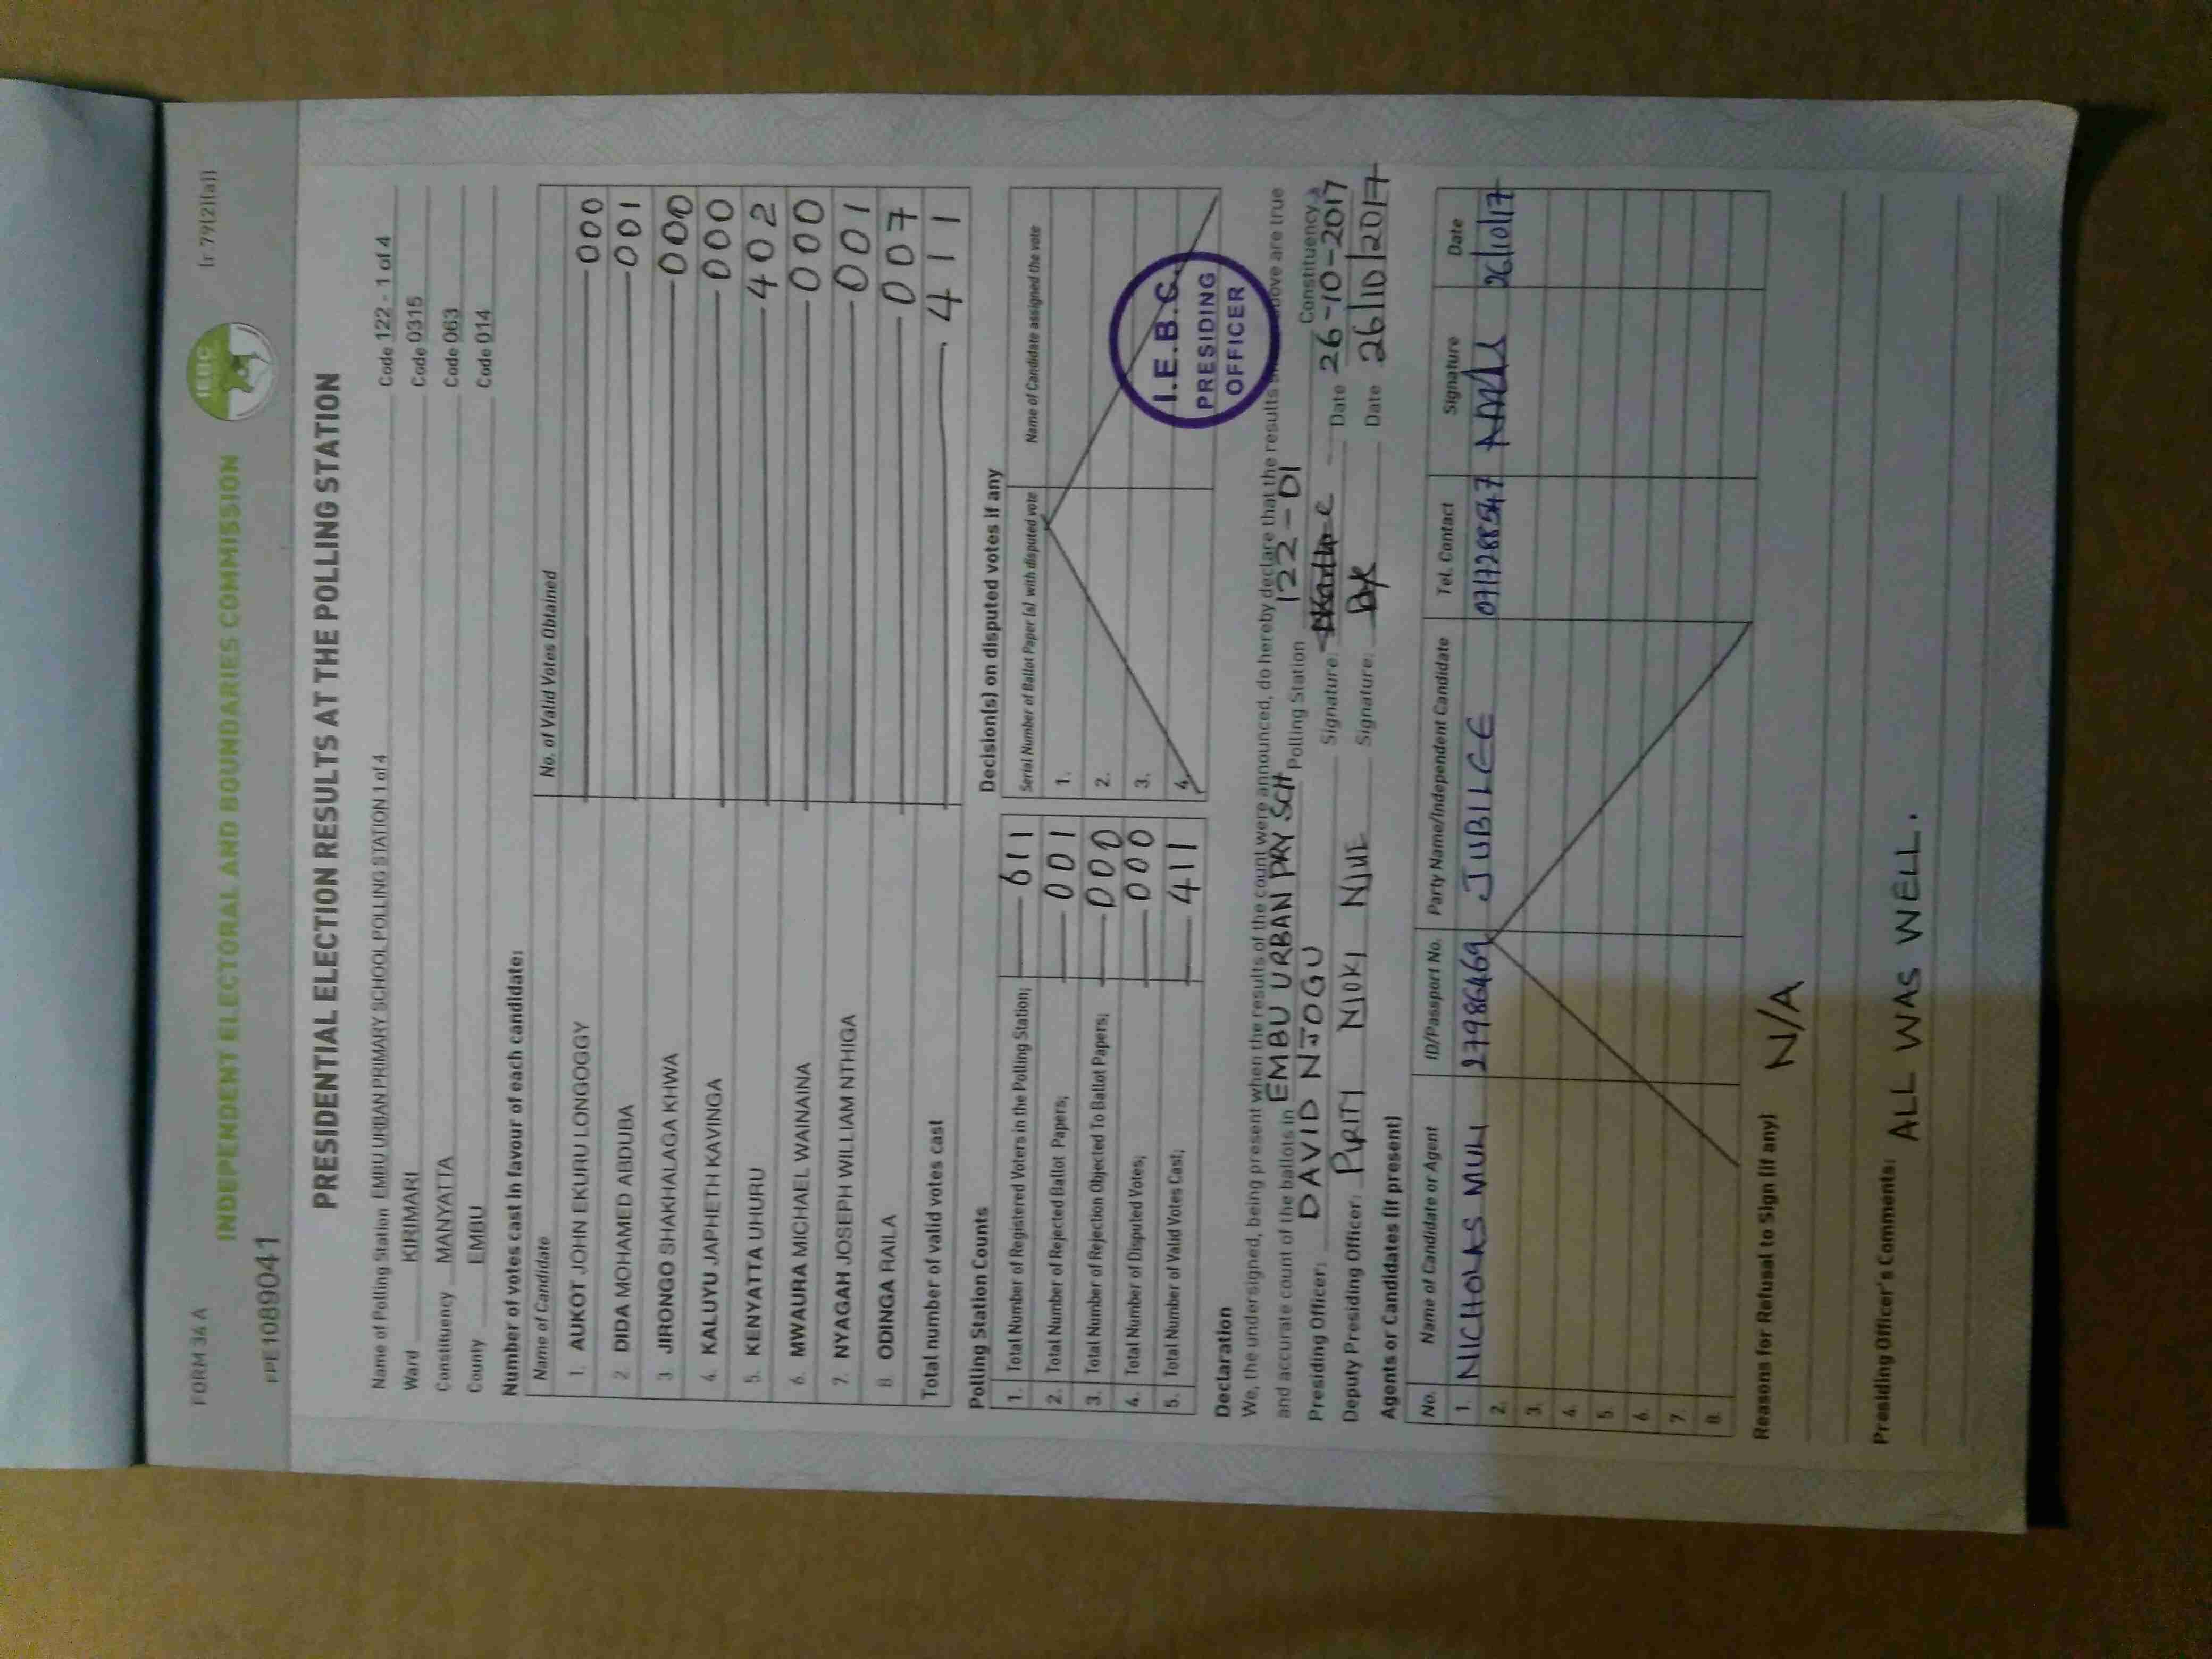 FORM 34 A [r 79(2)(a)]
IEBC
INDEPENDENT ELECTORAL AND BOUNDARIES COMMISSION
PRESIDENTIAL ELECTION RESULTS AT THE POLLING STATION
Name of Polling Station EMBU URBAN PRIMARY SCHOOL POLLING STATION 1 of 4 Code 122 - 1 of 4
Ward KIRIMARI Code 0315
Constituency MANYATTA Code 063
County EMBU Code 014
Number of votes cast in favour of each candidate:
Name of Candidate No. of Valid Votes Obtained
1. AUKOT JOHN EKURU LONGOGGY 000
2. DIDA MOHAMED ABDUBA 001
3. JIRONGO SHAKHALAGA KHWA 000
4. KALUYU JAPHETH KAVINGA 000
5. KENYATTA UHURU 402
6. MWAURA MICHAEL WAINAINA 000
7. NYAGAH JOSEPH WILLIAM NTHIGA 001
8. ODINGA RAILA 007
Total number of valid votes cast 411
Polling Station Counts
1. Total Number of Registered Voters in the Polling Station; 611
2. Total Number of Rejected Ballot Papers; 001
3. Total Number of Rejection Objected To Ballot Papers; 000
4. Total Number of Disputed Votes; 000
5. Total Number of Valid Votes Cast; 411
Decision(s) on disputed votes if any
Serial Number of Ballot Paper (s) with disputed vote Name of Candidate assigned the vote
1.
2.
3.
4.
I.E.B.C.
PRESIDING
OFFICER
Declaration
We, the undersigned, being present when the results of the count were announced, do hereby declare that the results above are true
and accurate count of the ballots in EMBU URBAN PRY SCH Polling Station 122-01 Constituency
Presiding Officer: DAVID NJOGU Signature: Date 26-10-2017
Deputy Presiding Officer: PURITY NJOKI NJUE Signature: Date 26/10/2017
Agents or Candidates (if present)
No. Name of Candidate or Agent ID/Passport No. Party Name/Independent Candidate Tel. Contact Signature Date
1. NICHOLAS 27986469 JUBILEE 26/10/17
2.
3.
4.
5.
6.
7.
8.
Reasons for Refusal to Sign (if any) N/A
Presiding Officer's Comments: ALL WAS WELL.